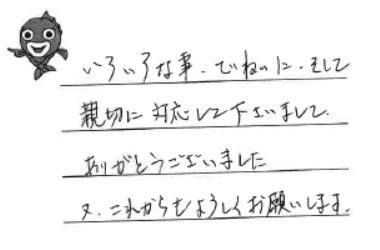 いろいろな事、ていねいに、そして
親切に対応して下さいまして、
ありがとうございました
又、これからもよろしくお願いします。